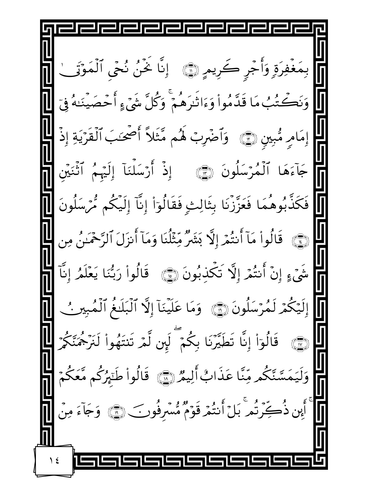 بِمَغْفِرَةٍ وَأَجْرٍ كَرِيمٍ ۝١١ إِنَّا نَحْنُ نُحْىِ ٱلْمَوْتَىٰ
وَنَكْتُبُ مَا قَدَّمُوا۟ وَءَاثَـٰرَهُمْ ۚ وَكُلَّ شَىْءٍ أَحْصَيْنَـٰهُ فِىٓ
إِمَامٍ مُّبِينٍ ۝١٢ وَٱضْرِبْ لَهُم مَّثَلًا أَصْحَـٰبَ ٱلْقَرْيَةِ إِذْ
جَآءَهَا ٱلْمُرْسَلُونَ ۝١٣ إِذْ أَرْسَلْنَآ إِلَيْهِمُ ٱثْنَيْنِ
فَكَذَّبُوهُمَا فَعَزَّزْنَا بِثَالِثٍ فَقَالُوٓا۟ إِنَّآ إِلَيْكُم مُّرْسَلُونَ
۝١٤ قَالُوا۟ مَآ أَنتُمْ إِلَّا بَشَرٌ مِّثْلُنَا وَمَآ أَنزَلَ ٱلرَّحْمَـٰنُ مِن
شَىْءٍ إِنْ أَنتُمْ إِلَّا تَكْذِبُونَ ۝١٥ قَالُوا۟ رَبُّنَا يَعْلَمُ إِنَّآ
إِلَيْكُمْ لَمُرْسَلُونَ ۝١٦ وَمَا عَلَيْنَآ إِلَّا ٱلْبَلَـٰغُ ٱلْمُبِينُ
۝١٧ قَالُوٓا۟ إِنَّا تَطَيَّرْنَا بِكُمْ ۖ لَئِن لَّمْ تَنتَهُوا۟ لَنَرْجُمَنَّكُمْ
وَلَيَمَسَّنَّكُم مِّنَّا عَذَابٌ أَلِيمٌ ۝١٨ قَالُوا۟ طَـٰٓئِرُكُم مَّعَكُمْ
ۚ أَئِن ذُكِّرْتُم ۚ بَلْ أَنتُمْ قَوْمٌ مُّسْرِفُونَ ۝١٩ وَجَآءَ مِنْ
١٤